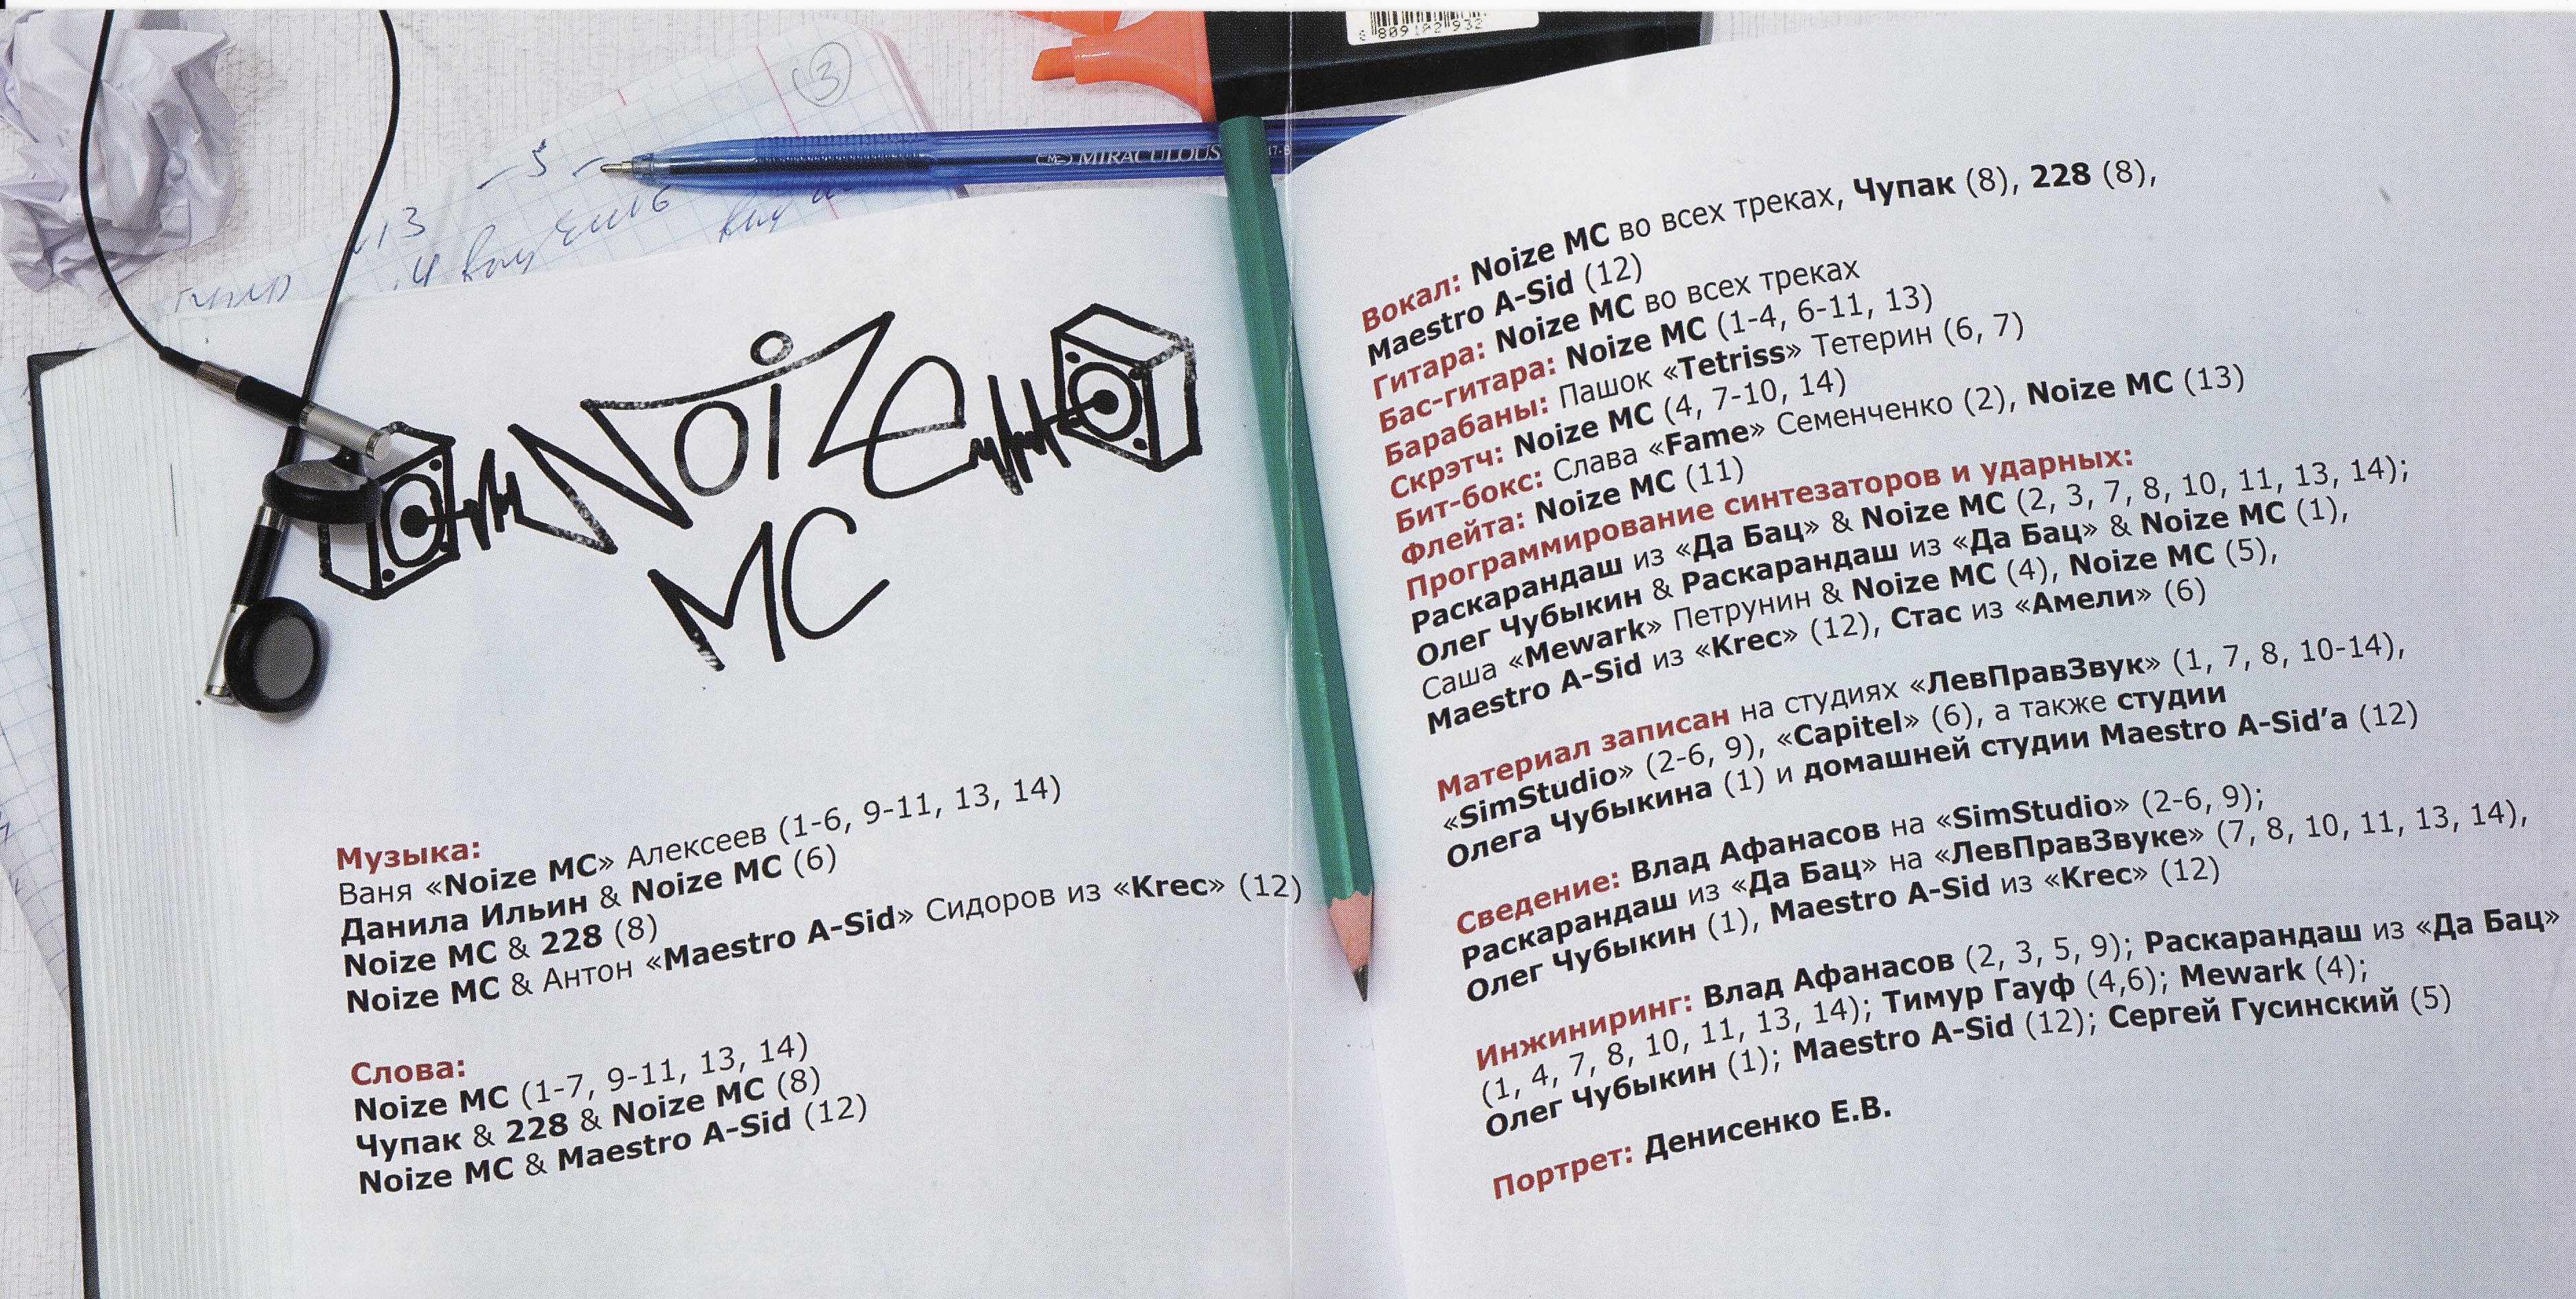 3
- 5 -
13
8 809182 932
MIRACULOUS
NOIZE
MC
Музыка:
Ваня «Noize MC» Алексеев (1-6, 9-11, 13, 14)
Данила Ильин & Noize MC (6)
Noize MC & 228 (8)
Noize MC & Антон «Maestro A-Sid» Сидоров из «Krec» (12)
Слова:
Noize MC (1-7, 9-11, 13, 14)
Чупак & 228 & Noize MC (8)
Noize MC & Maestro A-Sid (12)
Вокал: Noize MC во всех треках, Чупак (8), 228 (8),
Maestro A-Sid (12)
Гитара: Noize MC во всех треках
Бас-гитара: Noize MC (1-4, 6-11, 13)
Барабаны: Пашок «Tetriss» Тетерин (6, 7)
Скрэтч: Noize MC (4, 7-10, 14)
Бит-бокс: Слава «Fame» Семенченко (2), Noize MC (13)
Флейта: Noize MC (11)
Программирование синтезаторов и ударных:
Раскарандаш из «Да Бац» & Noize MC (2, 3, 7, 8, 10, 11, 13, 14);
Олег Чубыкин & Раскарандаш из «Да Бац» & Noize MC (1),
Саша «Mewark» Петрунин & Noize MC (4), Noize MC (5),
Maestro A-Sid из «Krec» (12), Стас из «Амели» (6)
Материал записан на студиях «ЛевПравЗвук» (1, 7, 8, 10-14),
«SimStudio» (2-6, 9), «Capitel» (6), а также студии
Олега Чубыкина (1) и домашней студии Maestro A-Sid’а (12)
Сведение: Влад Афанасов на «SimStudio» (2-6, 9);
Раскарандаш из «Да Бац» на «ЛевПравЗвуке» (7, 8, 10, 11, 13, 14),
Олег Чубыкин (1), Maestro A-Sid из «Krec» (12)
Инжиниринг: Влад Афанасов (2, 3, 5, 9); Раскарандаш из «Да Бац»
(1, 4, 7, 8, 10, 11, 13, 14); Тимур Гауф (4,6); Mewark (4);
Олег Чубыкин (1); Maestro A-Sid (12); Сергей Гусинский (5)
Портрет: Денисенко Е.В.